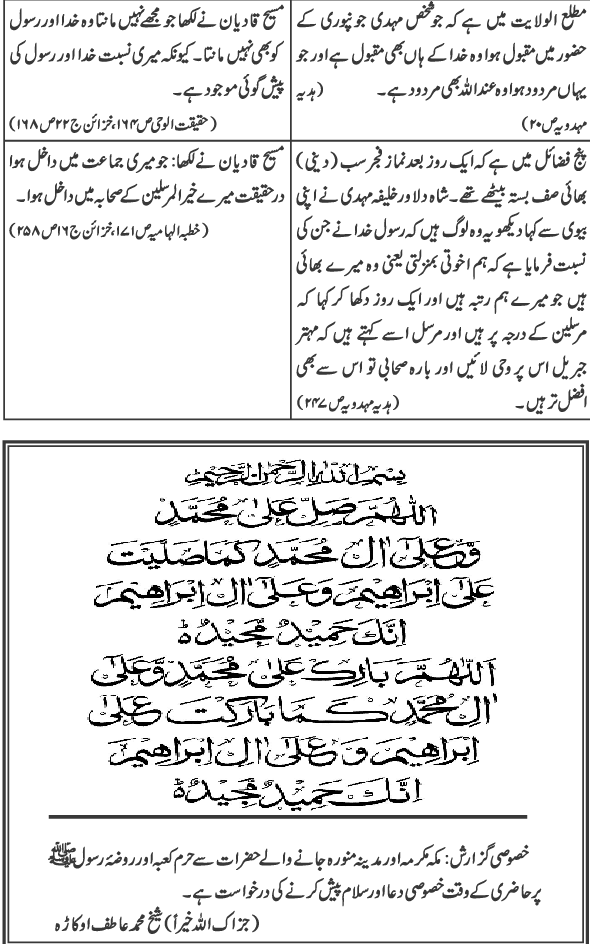 مطلع الولایت میں ہے کہ جو شخص مہدی جونپوری کے
حضور میں مقبول ہوا وہ خدا کے ہاں بھی مقبول ہے اور جو
یہاں مردود ہوا وہ عنداللہ بھی مردود ہے۔ (ہدیہ
مہدویہ ص۲۰)
مسیح قادیان نے لکھا جو مجھے نہیں مانتا وہ خدا اور رسول
کو بھی نہیں مانتا۔ کیونکہ میری نسبت خدا اور رسول کی
پیش گوئی موجود ہے۔
(حقیقت الوحی ص۱۶۴، خزائن ج۲۲ ص۱۶۸)
پنج فضائل میں ہے کہ ایک روز بعد نماز فجر سب (دینی)
بھائی صف بستہ بیٹھے تھے۔ شاہ دلاور خلیفہ مہدی نے اپنی
بیوی سے کہا دیکھو یہ وہ لوگ ہیں کہ رسول خدا نے جن کی
نسبت فرمایا ہے کہ ہم اخوتی بمنزلتی یعنی وہ میرے بھائی
ہیں جو میرے ہم رتبہ ہیں اور ایک روز دکھا کر کہا کہ
مرسلین کے درجہ پر ہیں اور مرسل اسے کہتے ہیں کہ مہتر
جبریل اس پر وحی لائیں اور بارہ صحابی تو اس سے بھی
افضل تر ہیں۔ (ہدیہ مہدویہ ص۲۴۷)
مسیح قادیان نے لکھا: جو میری جماعت میں داخل ہوا
درحقیقت میرے خیر المرسلین کے صحابہ میں داخل ہوا۔
(خطبہ الہامیہ ص۱۷۱، خزائن ج۱۶ ص۲۵۸)
بسم الله الرحمن الرحیم
اللهم صل علی محمد
وعلی ال محمد کما صلیت
علی ابراهیم وعلی ال ابراهیم
انک حمید مجید ہ ط
اللهم بارک علی محمد وعلی
ال محمد کما بارکت علی
ابراهیم وعلی ال ابراهیم
انک حمید مجید ہ ط
خصوصی گزارش: مکہ مکرمہ اور مدینہ منورہ جانے والے حضرات سے حرم کعبہ اور روضۂ رسول ﷺ
پر حاضری کے وقت خصوصی دعا اور سلام پیش کرنے کی درخواست ہے۔
(جزاک اللہ خیراً) شیخ محمد عاطف اوکاڑہ